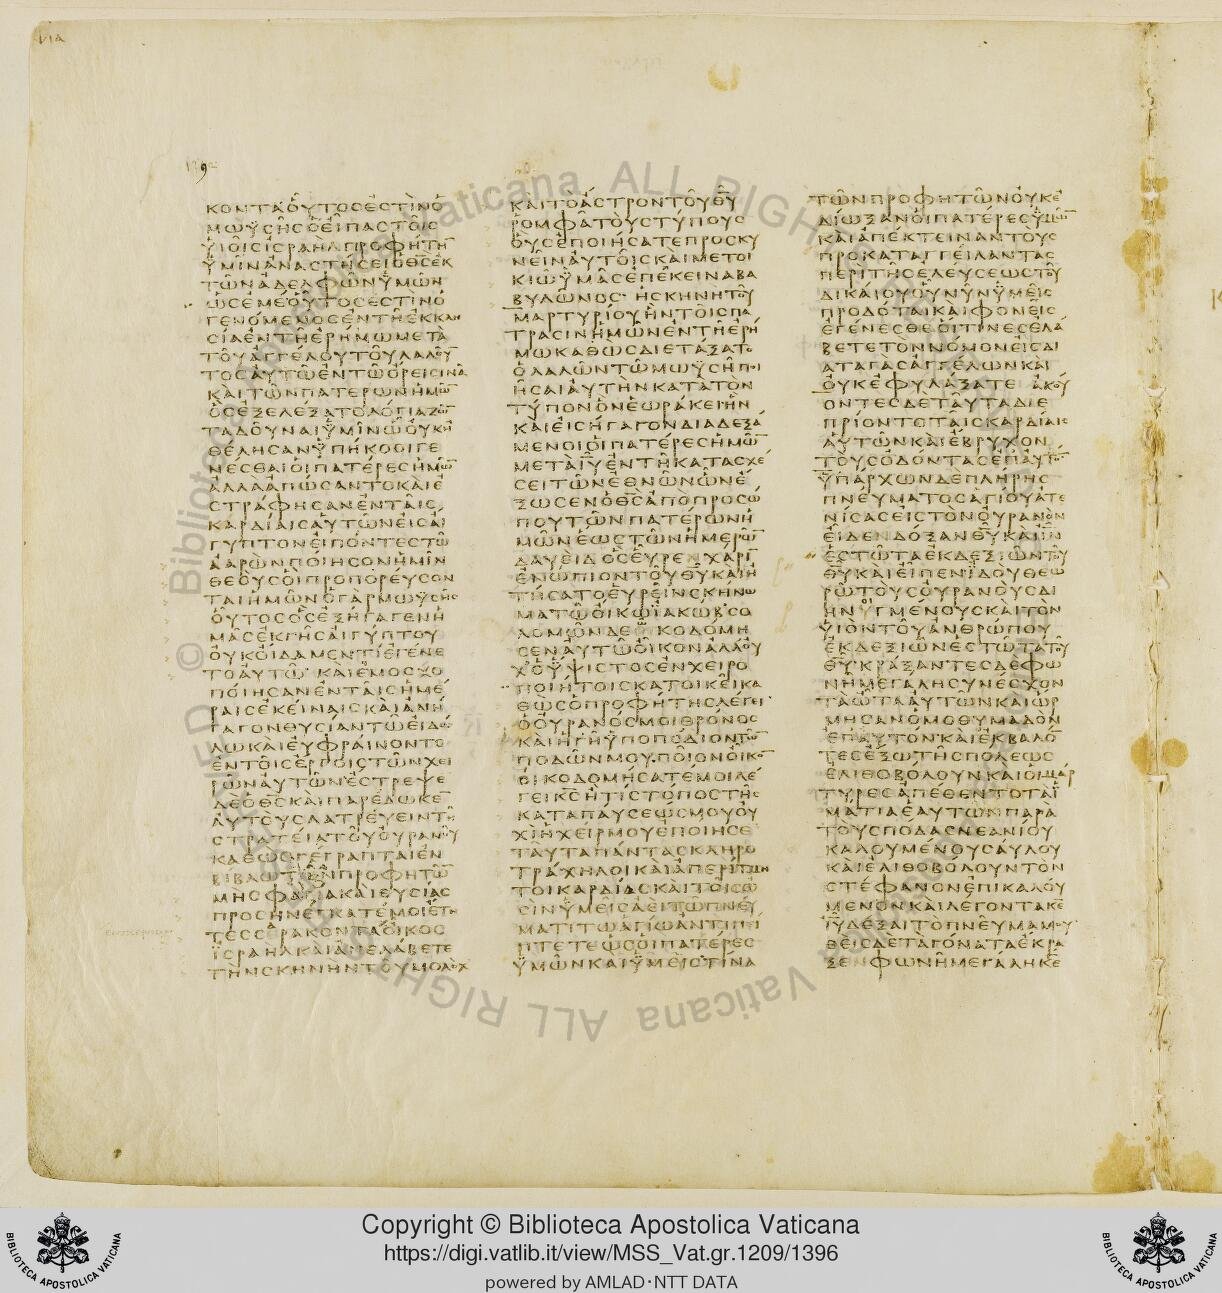 ΚΟΝΤΑΟΥΤΟϹΕϹΤΙΝΟ
ΜΩΫϹΗϹΟΕΙΠΑϹΤΟΙϹ
ΥΙΟΙϹΙϹΡΑΗΛΠΡΟΦΗΤΗ̅
ΫΜΙΝΑΝΑϹΤΗϹΕΙΟΘ̅ϹΕΚ
ΤΩΝΑΔΕΛΦΩΝΫΜΩΝ
ΩϹΕΜΕΟΥΤΟϹΕϹΤΙΝΟ
ΓΕΝΟΜΕΝΟϹΕΝΤΗΕΚΚΛΗ
ϹΙΑΕΝΤΗΕΡΗΜΩΜΕΤΑ
ΤΟΥΑΓΓΕΛΟΥΤΟΥΛΑΛΟΥ̅
ΤΟϹΑΥΤΩΕΝΤΩΟΡΕΙϹΙΝΑ
ΚΑΙΤΩΝΠΑΤΕΡΩΝΗΜΩ̅
ΟϹΕΞΕΛΕΞΑΤΟΛΟΓΙΑΖΩ̅
ΤΑΔΟΥΝΑΙΫΜΙΝΩΟΥΚΗ
ΘΕΛΗϹΑΝΫΠΗΚΟΟΙΓΕ
ΝΕϹΘΑΙΟΙΠΑΤΕΡΕϹΗΜΩ̅
ΑΛΛΑΑΠΩϹΑΝΤΟΚΑΙΕ
ϹΤΡΑΦΗϹΑΝΕΝΤΑΙϹ
ΚΑΡΔΙΑΙϹΑΥΤΩΝΕΙϹΑΙ
ΓΥΠΤΟΝΕΙΠΟΝΤΕϹΤΩ
ΑΑΡΩΝΠΟΙΗϹΟΝΗΜΙΝ
ΘΕΟΥϹΟΙΠΡΟΠΟΡΕΥϹΟΝ
ΤΑΙΗΜΩΝΟΓΑΡΜΩΫϹΗϹ
ΟΥΤΟϹΟϹΕΞΗΓΑΓΕΝΗ
ΜΑϹΕΚΓΗϹΑΙΓΥΠΤΟΥ
ΟΥΚΟΙΔΑΜΕΝΤΙΕΓΕΝΕ
ΤΟΑΥΤΩΚΑΙΕΜΟϹΧΟ
ΠΟΙΗϹΑΝΕΝΤΑΙϹΗΜΕ
ΡΑΙϹΕΚΕΙΝΑΙϹΚΑΙΑΝΗ
ΓΑΓΟΝΘΥϹΙΑΝΤΩΕΙΔΩ
ΛΩΚΑΙΕΥΦΡΑΙΝΟΝΤΟ
ΕΝΤΟΙϹΕΡΓΟΙϹΤΩΝΧΕΙ
ΡΩΝΑΥΤΩΝΕϹΤΡΕΨΕ
ΔΕΟΘ̅ϹΚΑΙΠΑΡΕΔΩΚΕ̅
ΑΥΤΟΥϹΛΑΤΡΕΥΕΙΝΤΗ
ϹΤΡΑΤΕΙΑΤΟΥΟΥΡΑΝΟΥ
ΚΑΘΩϹΓΕΓΡΑΠΤΑΙΕΝ
ΒΙΒΛΩΤΩΝΠΡΟΦΗΤΩ̅
ΜΗϹΦΑΓΙΑΚΑΙΘΥϹΙΑϹ
ΠΡΟϹΗΝΕΓΚΑΤΕΜΟΙΕΤΗ
ΤΕϹϹΕΡΑΚΟΝΤΑΟΙΚΟϹ
ΪϹΡΑΗΛΚΑΙΑΝΕΛΑΒΕΤΕ
ΤΗΝϹΚΗΝΗΝΤΟΥΜΟΛΟΧ
ΚΑΙΤΟΑϹΤΡΟΝΤΟΥΘΥ̅
ΡΟΜΦΑΤΟΥϹΤΥΠΟΥϹ
ΟΥϹΕΠΟΙΗϹΑΤΕΠΡΟϹΚΥ
ΝΕΙΝΑΥΤΟΙϹΚΑΙΜΕΤΟΙ
ΚΙΩΫΜΑϹΕΠΕΚΕΙΝΑΒΑ
ΒΥΛΩΝΟϹΗϹΚΗΝΗΤΟΥ
ΜΑΡΤΥΡΙΟΥΗΝΤΟΙϹΠΑ
ΤΡΑϹΙΝΗΜΩΝΕΝΤΗΕΡΗ
ΜΩΚΑΘΩϹΔΙΕΤΑΞΑΤΟ
ΟΛΑΛΩΝΤΩΜΩΫϹΗΠΟΙ
ΗϹΑΙΑΥΤΗΝΚΑΤΑΤΟΝ
ΤΥΠΟΝΟΝΕΩΡΑΚΕΙΗΝ
ΚΑΙΕΙϹΗΓΑΓΟΝΔΙΑΔΕΞΑ
ΜΕΝΟΙΟΙΠΑΤΕΡΕϹΗΜΩ̅
ΜΕΤΑΙΥ̅ΕΝΤΗΚΑΤΑϹΧΕ
ϹΕΙΤΩΝΕΘΝΩΝΩΝΕ
ΞΩϹΕΝΟΘ̅ϹΑΠΟΠΡΟϹΩ
ΠΟΥΤΩΝΠΑΤΕΡΩΝΗ
ΜΩΝΕΩϹΤΩΝΗΜΕΡΩ̅
ΔΑΥΕΙΔΟϹΕΥΡΕΝΧΑΡΙ̅
ΕΝΩΠΙΟΝΤΟΥΘΥ̅ΚΑΙΗ
ΤΗϹΑΤΟΕΥΡΕΙΝϹΚΗΝΩ
ΜΑΤΩΟΙΚΩΪΑΚΩΒϹΟ
ΛΟΜΩΝΔΕΟΙΚΟΔΟΜΗ
ϹΕΝΑΥΤΩΟΙΚΟΝΑΛΛΟΥ
ΧΟΫΨΙϹΤΟϹΕΝΧΕΙΡΟ
ΠΟΙΗΤΟΙϹΚΑΤΟΙΚΕΙΚΑ
ΘΩϹΟΠΡΟΦΗΤΗϹΛΕΓΕΙ
ΟΟΥΡΑΝΟϹΜΟΙΘΡΟΝΟϹ
ΚΑΙΗΓΗΫΠΟΠΟΔΙΟΝΤΩ̅
ΠΟΔΩΝΜΟΥΠΟΙΟΝΟΙΚΟ̅
ΟΙΚΟΔΟΜΗϹΑΤΕΜΟΙΛΕ
ΓΕΙΚ̅ϹΗΤΙϹΤΟΠΟϹΤΗϹ
ΚΑΤΑΠΑΥϹΕΩϹΜΟΥΟΥ
ΧΙΗΧΕΙΡΜΟΥΕΠΟΙΗϹΕ
ΤΑΥΤΑΠΑΝΤΑϹΚΛΗΡΟ
ΤΡΑΧΗΛΟΙΚΑΙΑΠΕΡΙΤΜΗ
ΤΟΙΚΑΡΔΙΑϹΚΑΙΤΟΙϹΩ
ϹΙΝΫΜΕΙϹΑΕΙΤΩΠΝΕΥ
ΜΑΤΙΤΩΑΓΙΩΑΝΤΙΠΙ
ΠΤΕΤΕΩϹΟΙΠΑΤΕΡΕϹ
ΫΜΩΝΚΑΙΫΜΕΙϹΤΙΝΑ
ΤΩΝΠΡΟΦΗΤΩΝΟΥΚΕ
ΔΙΩΞΑΝΟΙΠΑΤΕΡΕϹΥΜΩ̅
ΚΑΙΑΠΕΚΤΕΙΝΑΝΤΟΥϹ
ΠΡΟΚΑΤΑΓΓΕΙΛΑΝΤΑϹ
ΠΕΡΙΤΗϹΕΛΕΥϹΕΩϹΤΟΥ
ΔΙΚΑΙΟΥΟΥΝΥΝΫΜΕΙϹ
ΠΡΟΔΟΤΑΙΚΑΙΦΟΝΕΙϹ
ΕΓΕΝΕϹΘΕΟΙΤΙΝΕϹΕΛΑ
ΒΕΤΕΤΟΝΝΟΜΟΝΕΙϹΔΙ
ΑΤΑΓΑϹΑΓΓΕΛΩΝΚΑΙ
ΟΥΚΕΦΥΛΑΞΑΤΕΑΚΟΥ
ΟΝΤΕϹΔΕΤΑΥΤΑΔΙΕ
ΠΡΙΟΝΤΟΤΑΙϹΚΑΡΔΙΑΙϹ
ΑΥΤΩΝΚΑΙΕΒΡΥΧΟΝ
ΤΟΥϹΟΔΟΝΤΑϹΕΠΑΥΤΟ̅
ΫΠΑΡΧΩΝΔΕΠΛΗΡΗϹ
ΠΝΕΥΜΑΤΟϹΑΓΙΟΥΑΤΕ
ΝΙϹΑϹΕΙϹΤΟΝΟΥΡΑΝΟΝ
ΕΙΔΕΝΔΟΞΑΝΘΥ̅ΚΑΙΙΝ̅
ΕϹΤΩΤΑΕΚΔΕΞΙΩΝΤΟΥ
ΘΥ̅ΚΑΙΕΙΠΕΝΙΔΟΥΘΕΩ
ΡΩΤΟΥϹΟΥΡΑΝΟΥϹΔΙ
ΗΝΥΓΜΕΝΟΥϹΚΑΙΤΟΝ
ΥΙΟΝΤΟΥΑΝΘΡΩΠΟΥ
ΕΚΔΕΞΙΩΝΕϹΤΩΤΑΤΟΥ
ΘΥ̅ΚΡΑΞΑΝΤΕϹΔΕΦΩ
ΝΗΜΕΓΑΛΗϹΥΝΕϹΧΟΝ
ΤΑΩΤΑΑΥΤΩΝΚΑΙΩΡ
ΜΗϹΑΝΟΜΟΘΥΜΑΔΟΝ
ΕΠΑΥΤΟΝΚΑΙΕΚΒΑΛΟ̅
ΤΕϹΕΞΩΤΗϹΠΟΛΕΩϹ
ΕΛΙΘΟΒΟΛΟΥΝΚΑΙΟΙΜΑΡ
ΤΥΡΕϹΑΠΕΘΕΝΤΟΤΑΪ
ΜΑΤΙΑΕΑΥΤΩΝΠΑΡΑ
ΤΟΥϹΠΟΔΑϹΝΕΑΝΙΟΥ
ΚΑΛΟΥΜΕΝΟΥϹΑΥΛΟΥ
ΚΑΙΕΛΙΘΟΒΟΛΟΥΝΤΟΝ
ϹΤΕΦΑΝΟΝΕΠΙΚΑΛΟΥ
ΜΕΝΟΝΚΑΙΛΕΓΟΝΤΑΚΕ̅
ΙΥ̅ΔΕΞΑΙΤΟΠΝΕΥΜΑΜΟΥ
ΘΕΙϹΔΕΤΑΓΟΝΑΤΑΕΚΡΑ
ΞΕΝΦΩΝΗΜΕΓΑΛΗΚΕ̅
© Biblioteca Apostolica Vaticana ALL RIGHTS RESERVED
Copyright © Biblioteca Apostolica Vaticana
https://digi.vatlib.it/view/MSS_Vat.gr.1209/1396
powered by AMLAD·NTT DATA
BIBLIOTECA APOSTOLICA VATICANA
BIBLIOTECA APOSTOLICA VATICANA